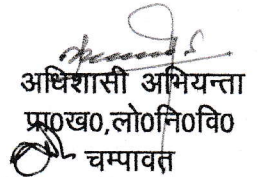 अधिशासी अभियन्ता
प्रा०ख०,लो०नि०वि०
चम्पावत